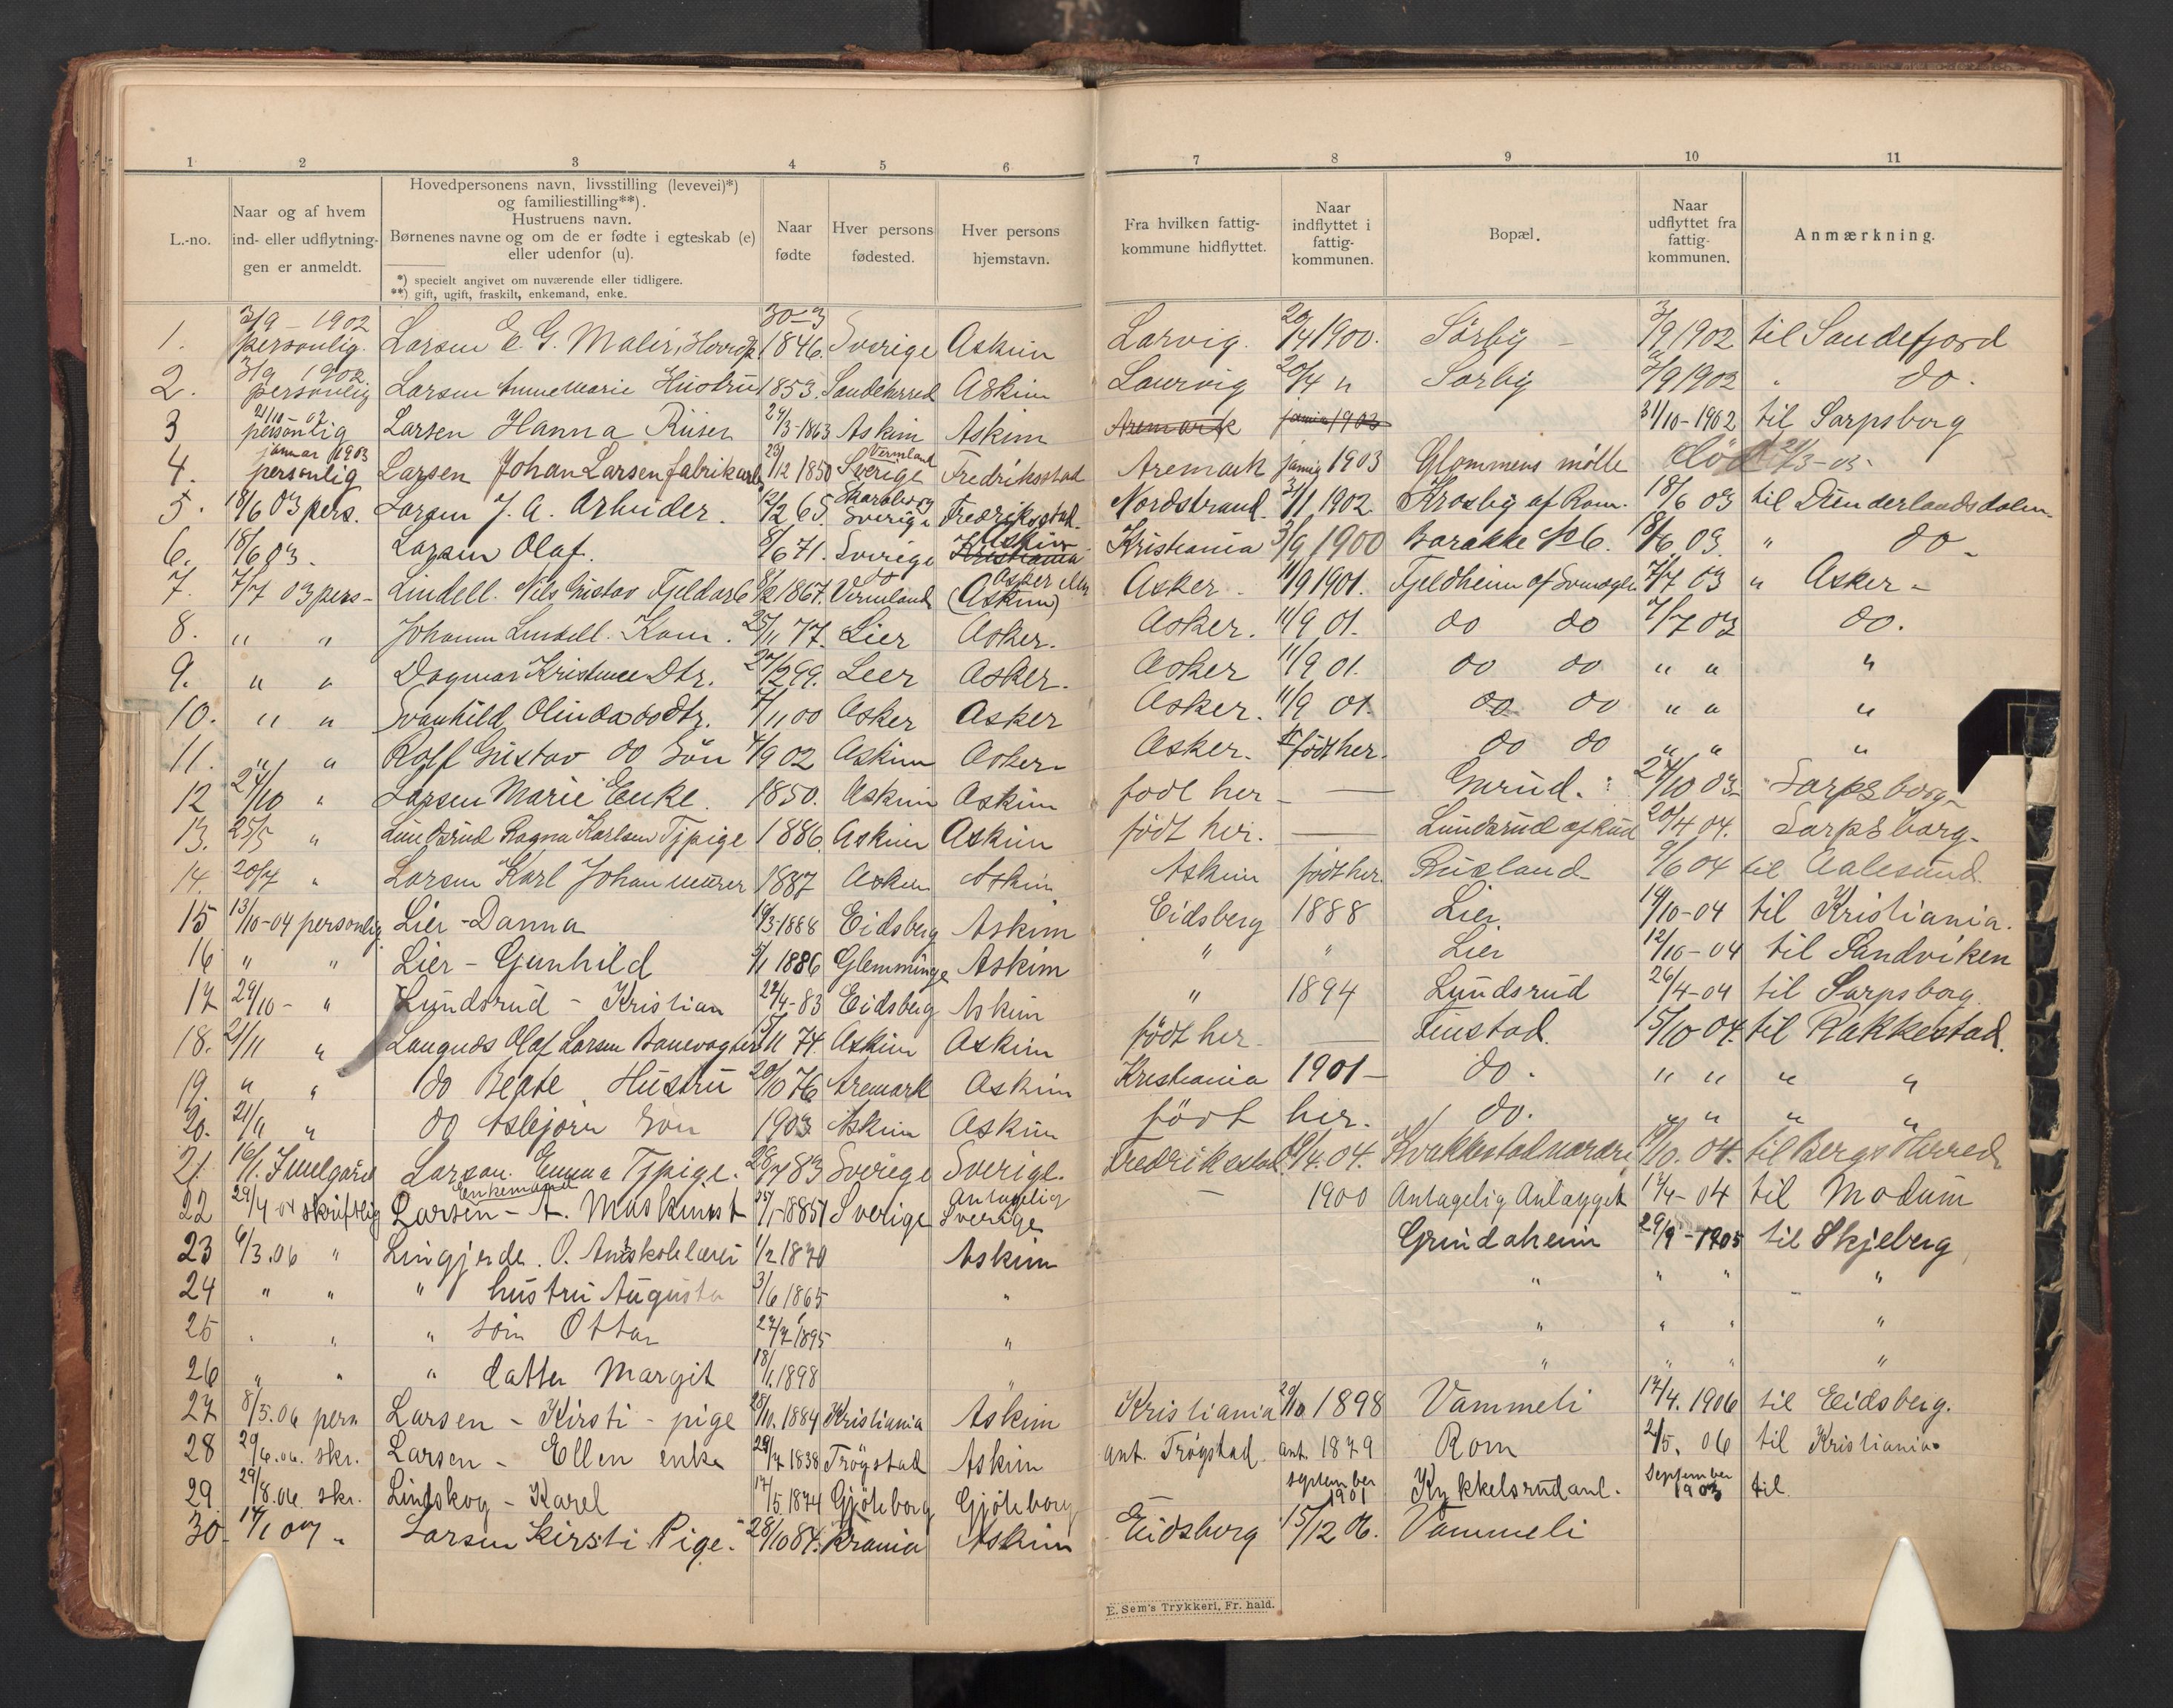 1 2 3 4 5 6 7 8 9 10 11
L.-no.
Naar og af hvem
ind- eller udflytnin-
gen er anmeldt.
Hovedpersonens navn, livsstilling (levevei)*)
og familiestilling**).
Hustruens navn.
Børnenes navne og om de er fødte i egteskab (e)
eller udenfor (u).
*) specielt angivet om nuværende eller tidligere.
**) gift, ugift, fraskilt, enkemand, enke.
Naar
fødte
Hver persons
fødested.
Hver persons
hjemstavn.
Fra hvilken fattig-
kommune hidflyttet.
Naar
indflyttet i
fattig-
kommunen.
Bopæl.
Naar
udflyttet fra
fattig-
kommunen.
Anmærkning.
1. 3/9 - 1902 personlig. Larsen E. G. Maler, 30-3 1846. Sverige Askim Larvig. 20/4 1900. Sørby - 3/9 1902 til Sandefjord
2. 3/9 1902 personlig Larsen Annemarie Hustru 1853. Sandeherred Askim Laurvig 20/4 " Sørby 3/9 1902 " do.
3 21/10-02 personlig Larsen Hanna Riiser 29/3-1863 Askim Askim Aremark januar 1903 31/10-1902 til Sarpsborg
4. januar 1903 personlig Larsen Johan Larsen fabrikarb 23/12 1850 Vermland Sverige Fredriksstad Aremark 1903 Glommens mølle død 21/3-03-
5. 18/6 03 pers. Larsen J. A. Arbeider. 12/2 65. Skaraborg Sverige Fredriksstad. Nordstrand. 3/11 1902. Krosby af Rom. 18/6 03 til Dunderlandsdalen
6. 18/6 03. Larsen Olaf. 8/6 71. Sverige Askim Kristiania Kristiania 3/9 1900 Barakke No 6. 18/6 03. " do -
7. 7/7 03 pers- Lindell. Nils Gustav Fjeldarb 8/2 1867. Vermland Asker eller (Askim) Asker. 11/9 1901. Fjeldheim af 7/7 03 " Asker -
8. " " Johanne Lindell. Kone. 25/11 77. Lier Asker. Asker. 11/9 01. do do 7/7 03 do.
9. " " Dagmar Kristence Dtr. 27/2 99. Leer Asker. Asker 11/9 01. do do " " "
10. " " Svanhild Olinda do Dtr. 7/11 00 Asker Asker Asker. 11/9 01. do do " " "
11. " " Rolf Gustav do Søn 4/9 02 Askim Asker Asker. født her. do do " " "
12 24/10 " Larsen Marie Enke. 1850. Askim Askim født her - — Grud. 24/10 03- Sarpsborg-
13. 25/5 " Lundsrud Ragna Karlsen Tjpige 1886. Askim Askim født her. — Lundsrud af Rud 20/4 04. Sarpsborg-
14. 20/7 " Larsen Karl Johan murer 1887 Askim Askim Askim født her. Rusland 9/6 04 til Aalesund.
15 13/10-04 personlig Lier - Danna 19/3-1888 Eidsberg Askim Eidsberg 1888 Lier 14/10-04 til Kristiania.
16 " " Lier - Gunhild 5/1 1886 Glemminge Askim " " Lier 12/10-04 til Sandviken
17 29/10- " Lundsrud - Kristian 22/4-83 Eidsberg Askim " 1894 Lundsrud 26/4-04 til Sarpsborg.
18. 21/11 " Langnes Olaf Larsen Banevogter 15/11 74. Askim Askim født her. — Finstad. 15/10 04. til Rakkestad.
19. " " do Beate Hustru 20/10 76 Aremark Askim Kristiania 1901- do. " " " "
20. 21/11 " do Asbjørn Søn 1903 Askim Askim født her. do. " " " "
21. 16/1. Larsen. Emma Tjpige. 28/7 83 Sverige Sverige. Fredriksstad 19/4. 04. 19/10. 04. til Bergs Herred
22 29/4 04 skriftlig Enkemand Larsen - A. Maskinist 25/1-1851 Sverige Antagelig Sverige - 1900 Antagelig Anlægget 12/4-04 til Modum
23 6/3.06 " Lingjerde. O. Amtskolelærer 1/2 1870 Askim Grindaheim 29/9-1905 til Skjeberg
24 " " " hustru Augusta 3/6 1865 " " " " "
25 " " " søn Ottar 27/7 1895 " " " " "
26 " " " datter Margit 18/1. 1898 " " " " "
27 8/5.06 pers Larsen - Kirsti - pige 28/10. 1884 Kristiania Askim Kristiania 29/10 1898 Vammeli 17/4. 1906 til Eidsberg.
28 29/6.06. skr. Larsen - Ellen enke 29/7 1838 Trøgstad Askim ant. Trøgstad ant. 1879 Rom 2/5. 06 til Kristiania.
29. 29/8.06. skr. Lindskog - Karel 17/5. 1874 Gjøteborg Gjøteborg september 1901 Kykkelsrudanl. September 1903 til
30. 17/1 07 " Larsen Kirsti Pige. 28/10 84. Krania Askim Eidsberg 15/12 06. Vammeli
E. Sem's Trykkeri, Fr. hald.